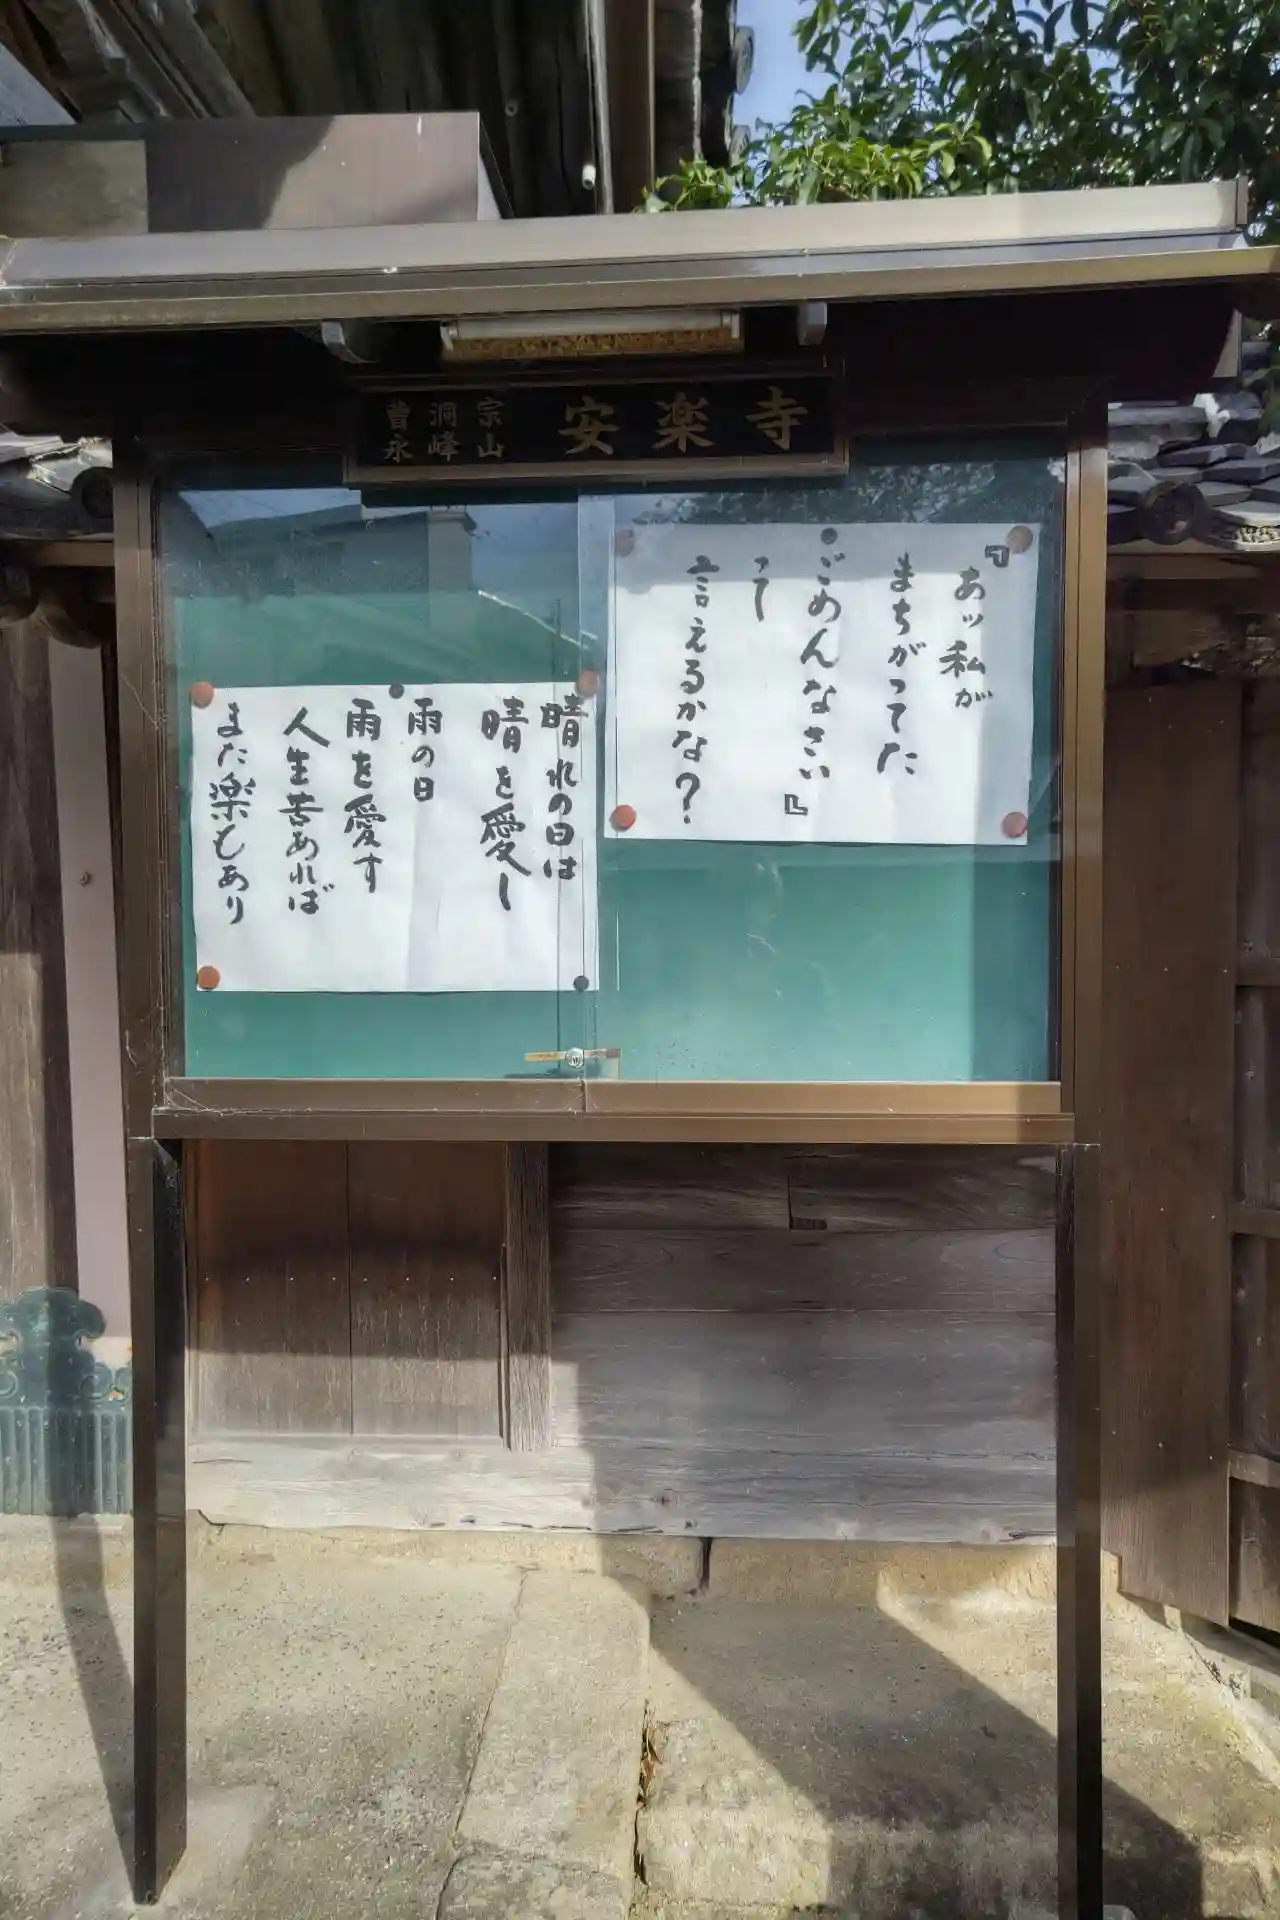 曹洞宗
永峰山
安楽寺
『あッ私が
まちがってた
ごめんなさい』
って
言えるかな？
晴れの日は
晴を愛し
雨の日
雨を愛す
人生苦あれば
また楽もあり